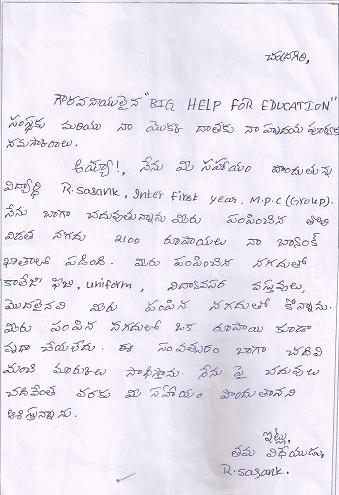 చంద్రగిరి,
గౌరవనీయులైన "BIG HELP FOR EDUCATION"
సంస్థకు మరియు నా యొక్క దాతకు నా హృదయ పూర్వక
నమస్కారాలు.
అయ్యా!, నేను మీ సహాయం పొందుతున్న
విద్యార్థి R.sasank, Inter first year, M.p.c (Group).
నేను బాగా చదువుతున్నాను మీరు పంపించిన తొలి
విడత నగదు 2100 రూపాయలు నా బ్యాంక్
ఖాతాలో పడింది. మీరు పంపించిన నగదుతో
కాలేజి ఫీజు, uniform, విద్యావసర వస్తువులు,
మొదలైనవి మీరు పంపిన నగదులో కొన్నాను.
మీరు పంపిన నగదులో ఒక రూపాయి కూడా
వృదా చేయలేదు. ఈ సంవత్సరం బాగా చదివి
మంచి మార్కులు సాధిస్తాను. నేను పై చదువులు
చదివేంత వరకు మీ సహాయం పొందుతానని
ఆశిస్తున్నాను.
ఇట్లు,
తమ విధేయుడు,
R.sasank.